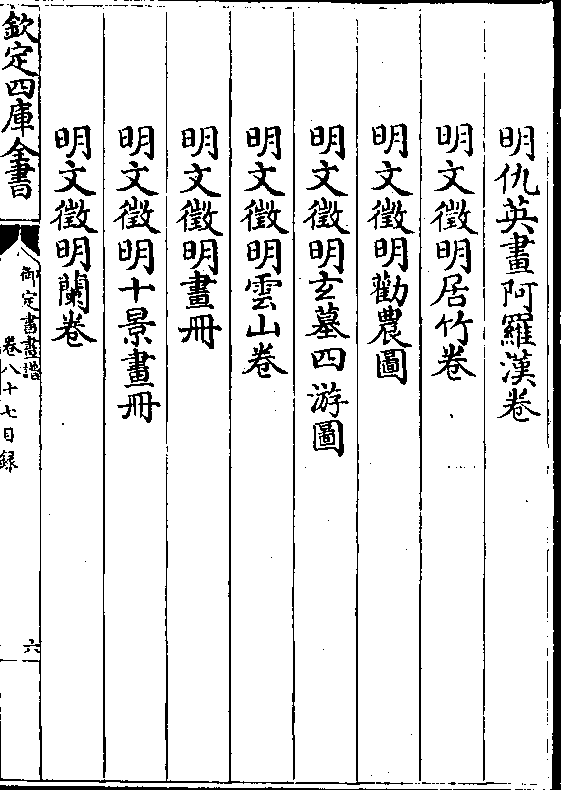 明仇英畫阿羅漢卷
明文徵明居竹卷
明文徵明勸農圖
明文徵明玄墓四游圖
明文徵明雲山卷
明文徵明畫冊
明文徵明十景畫冊
明文徵明蘭卷
欽定四庫全書
御定書畫譜
卷八十七目録
六